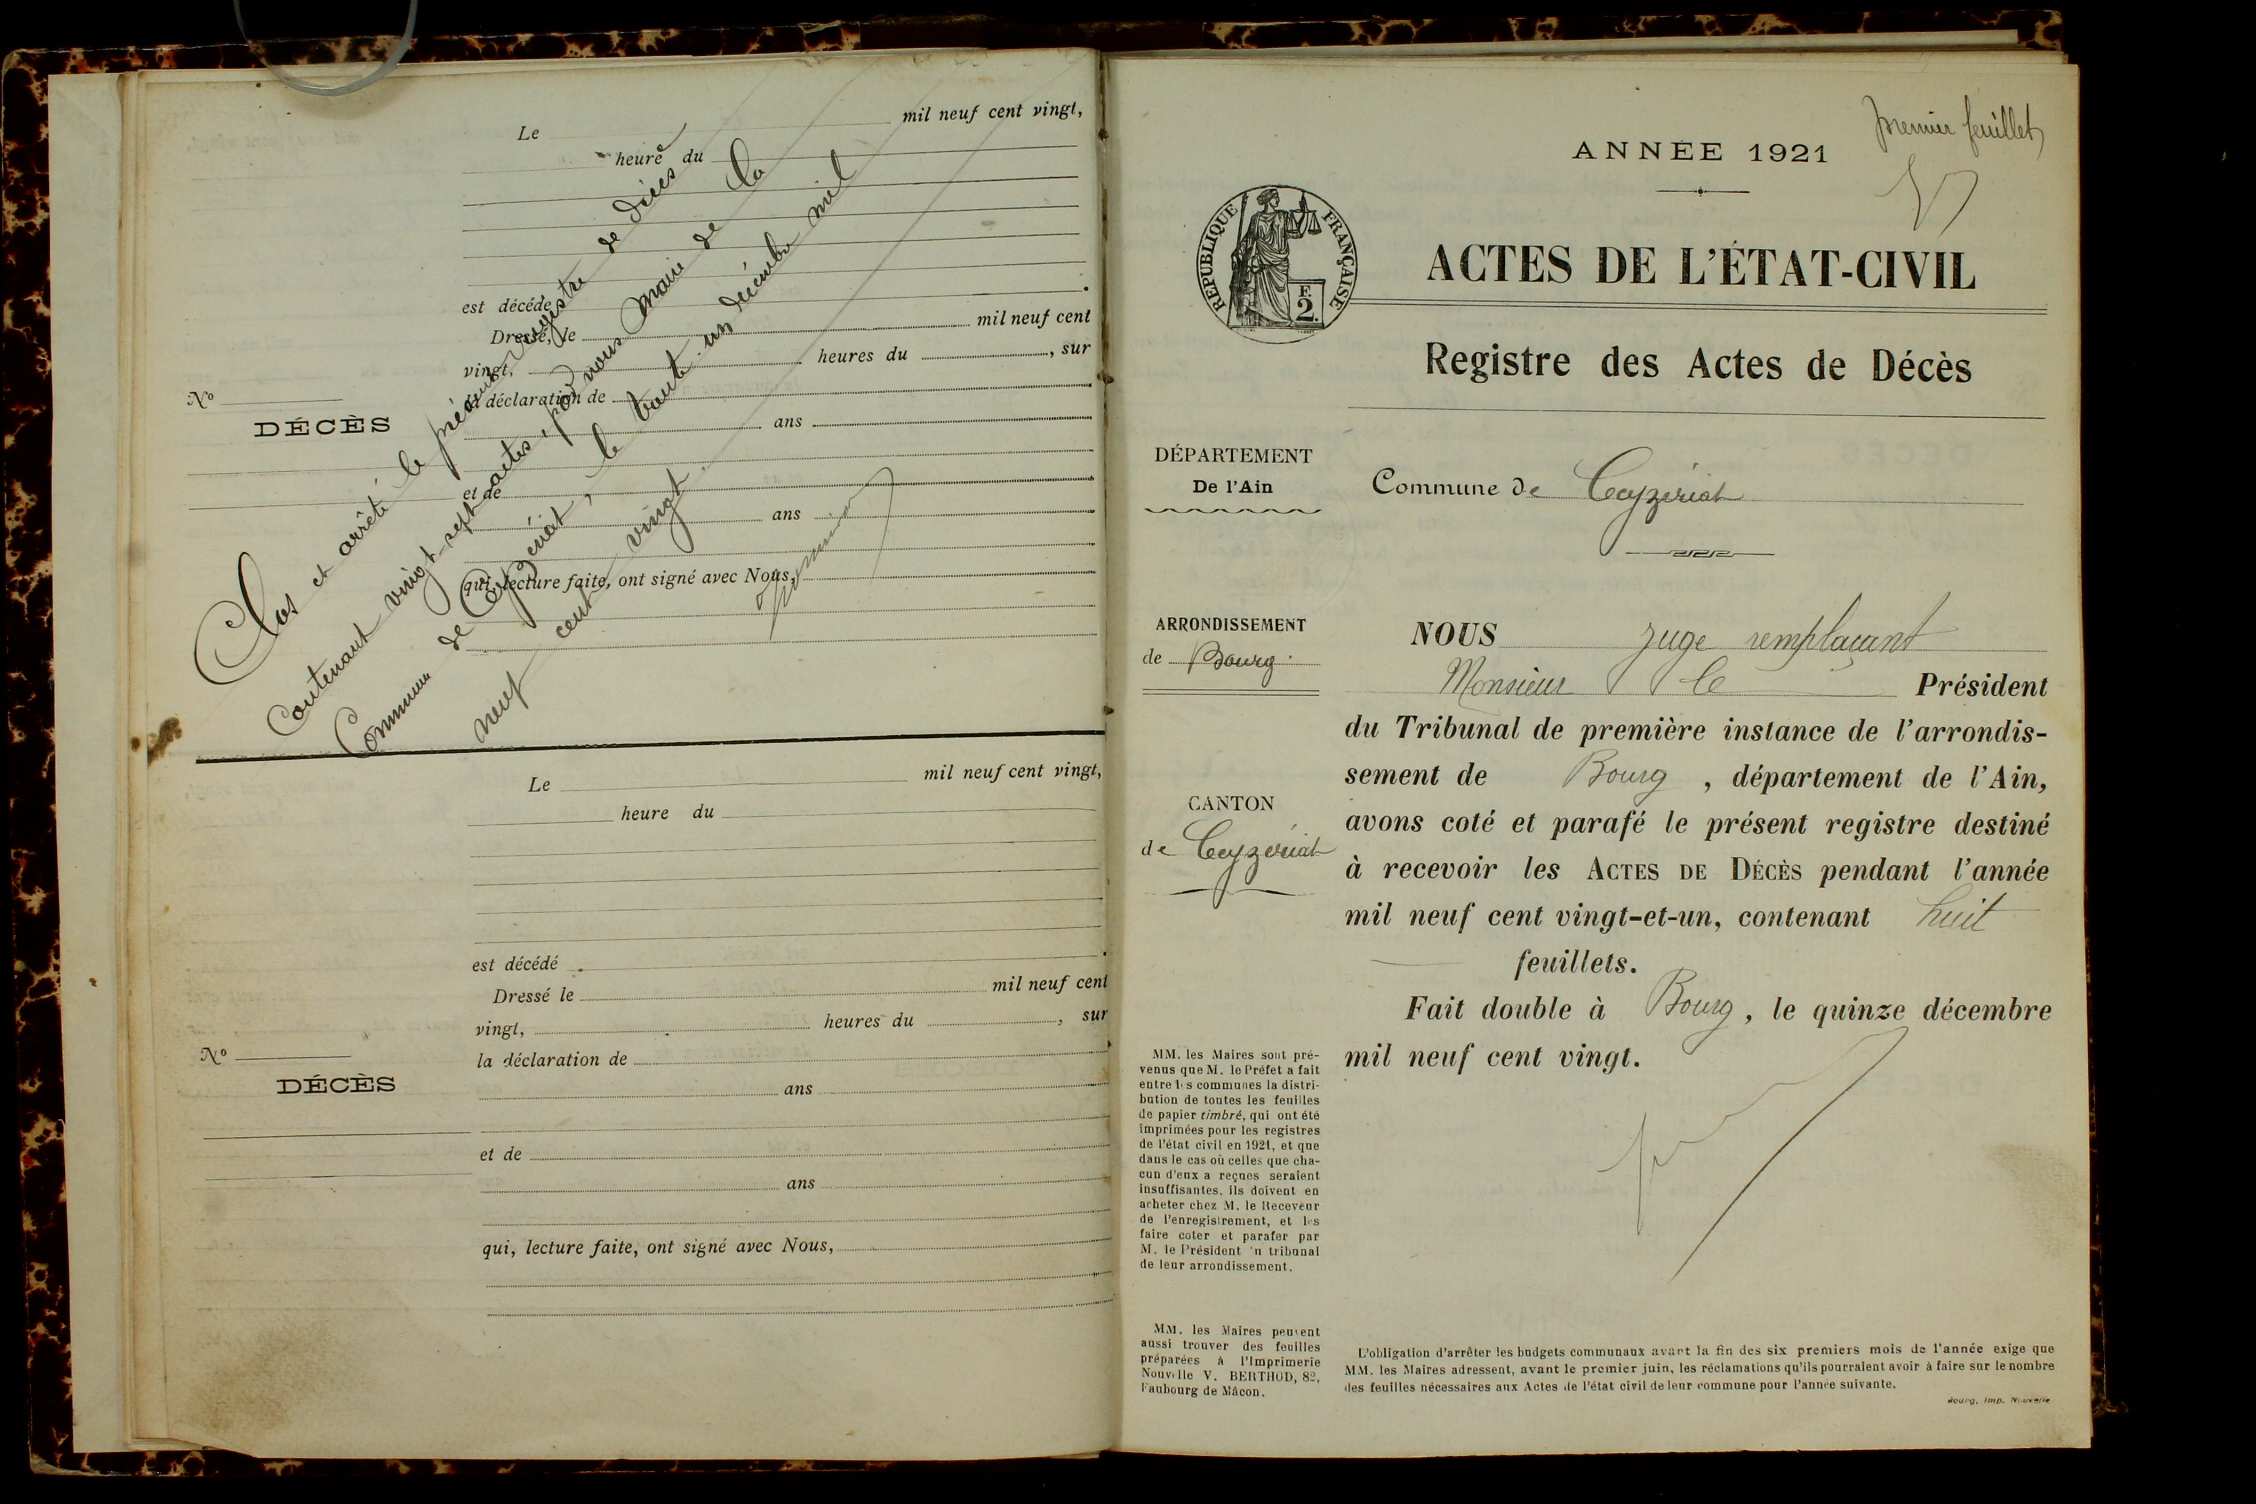 Le mil neuf cent vingt,
heure du
est décédé
Dressé, le mil neuf cent
vingt, heures du , sur
la déclaration de
ans
et de
ans
qui, lecture faite, ont signé avec Nous,
N°
DÉCÈS
Clos et arrêté le présent registre de décès
Contenant vingt-sept actes, par nous Maire de la
Commune de Ceyzériat, le trente un décembre mil
neuf cent vingt.
Le mil neuf cent vingt,
heure du
est décédé
Dressé le mil neuf cent
vingt, heures du , sur
la déclaration de
ans
et de
ans
qui, lecture faite, ont signé avec Nous,
N°
DÉCÈS
premier feuillet
ANNÉE 1921
RÉPUBLIQUE FRANÇAISE
F.
2.
ACTES DE L'ÉTAT-CIVIL
Registre des Actes de Décès
DÉPARTEMENT
De l'Ain
Commune de Ceyzériat
ARRONDISSEMENT
de Bourg
CANTON
de Ceyzériat
NOUS Juge remplaçant
Monsieur le Président
du Tribunal de première instance de l'arrondis-
sement de Bourg, département de l'Ain,
avons coté et parafé le présent registre destiné
à recevoir les ACTES DE DÉCÈS pendant l'année
mil neuf cent vingt-et-un, contenant huit
feuillets.
Fait double à Bourg, le quinze décembre
mil neuf cent vingt.
MM. les Maires sont pré-
venus que M. le Préfet a fait
entre les communes la distri-
bution de toutes les feuilles
de papier timbré, qui ont été
imprimées pour les registres
de l'état civil en 1921, et que
dans le cas où celles que cha-
cun d'eux a reçues seraient
insuffisantes, ils doivent en
acheter chez M. le Receveur
de l'enregistrement, et les
faire coter et parafer par
M. le Président 'u tribunal
de leur arrondissement.
MM. les Maires peuvent
aussi trouver des feuilles
préparées à l'Imprimerie
Nouvelle V. BERTHOD, 82,
Faubourg de Mâcon.
L'obligation d'arrêter les budgets communaux avant la fin des six premiers mois de l'année exige que
MM. les Maires adressent, avant le premier juin, les réclamations qu'ils pourraient avoir à faire sur le nombre
des feuilles nécessaires aux Actes de l'état civil de leur commune pour l'année suivante.
Bourg, Imp. Nouvelle